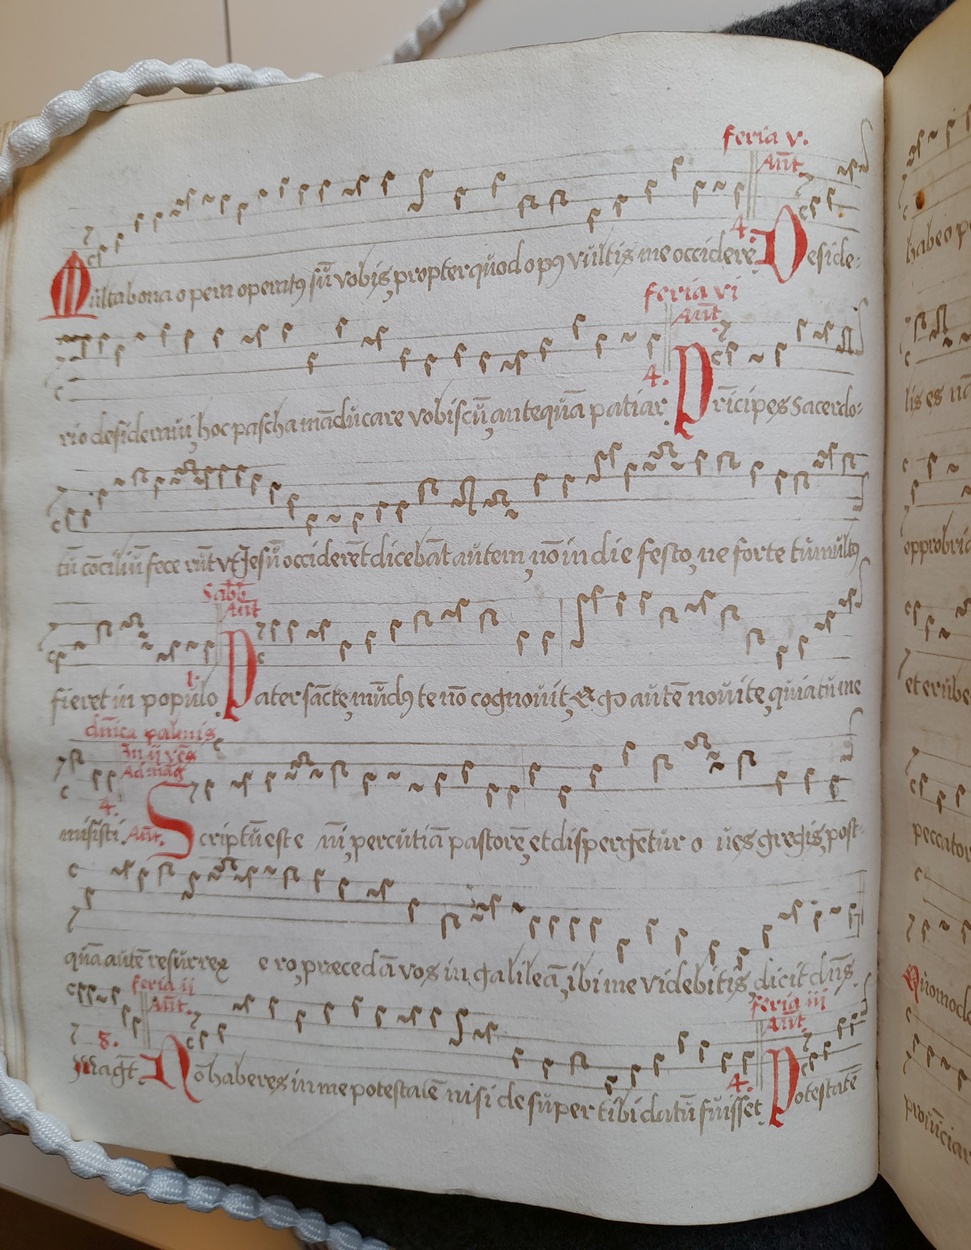 feria v.
Añt.
4.
Multa bona opera operatꝰ sũ vobis, propter quod opꝰ vultis me occidere. Deside-
feria vi
Añt.
4.
rio desideraui, hoc pascha mãducare vobiscũ, antequã patiar. Prĩcipes sacerdo-
tũ cõciliũ fecerũt vt Jesũ occiderẽt dicebãt autem, nõ in die festo, ne forte tumultꝰ
Sabb
Añt
1.
fieret in populo. Pater sãcte, mũdꝰ te nõ cognouit, ego autẽ noui te, quia tu me
dñica palmis
In ij vẽs
Ad mag̃
4.
misisti. Añt. Scriptũ est e ñi, percutiã pastorẽ, et dispergẽtur o ues gregis, post-
quã autẽ resurrex ero, præcedã vos in galileã, ibi me videbitis, dicit dñs.
feria ij
Añt.
feria iij
Añt
8.
4.
Magt̃. Nõ haberes in me potestatẽ nisi desuper tibi datũ fuisset. Potestatẽ
habeo p
lis es
opprobria
et erube
peccator
Quomod